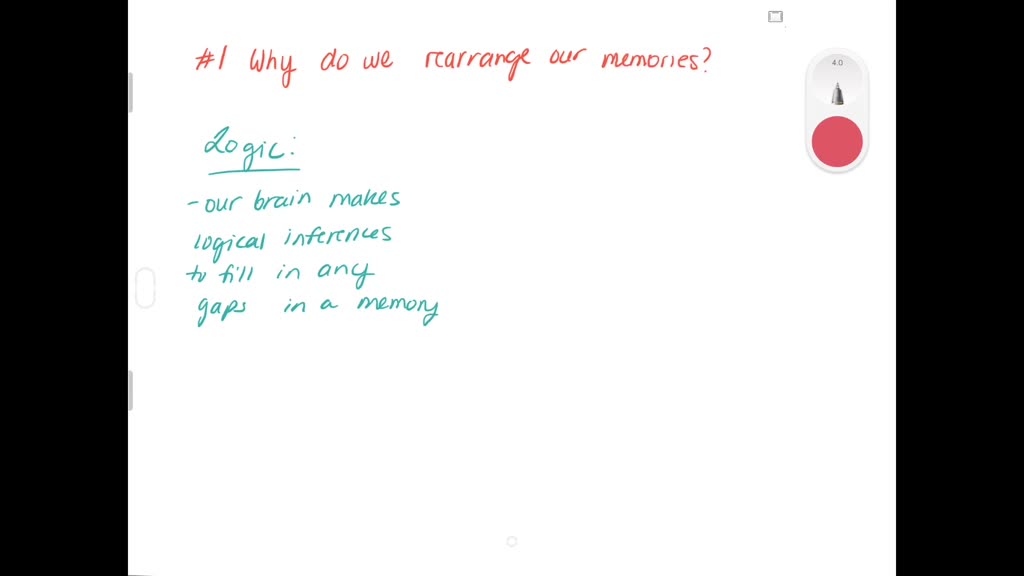 4.0
#1 Why do we rearrange our memories?
Logic:
- our brain makes
logical inferences
to fill in any
gaps in a memory